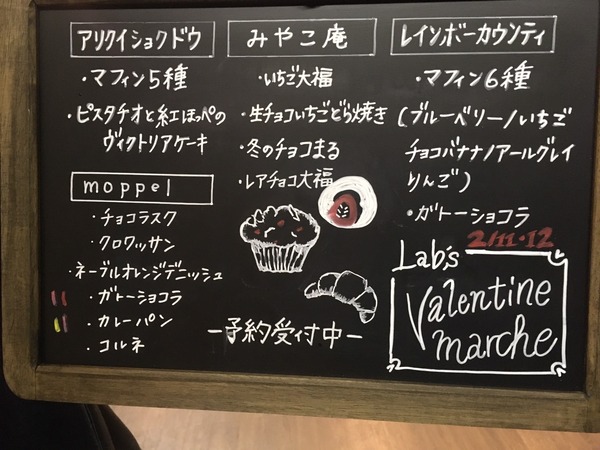 アリクイショクドウ
・マフィン5種
・ピスタチオと紅ほっぺの
ヴィクトリアケーキ
moppel
・チョコラスク
・クロワッサン
・ネーブルオレンジデニッシュ
・ガトーショコラ
・カレーパン
・コルネ
みやこ庵
・いちご大福
・生チョコいちごどら焼き
・冬のチョコまる
・レアチョコ大福
ー予約受付中ー
レインボーカウンティ
・マフィン6種
(ブルーベリー/いちご
チョコバナナ/アールグレイ
りんご)
・ガトーショコラ
2/11・12
Lab's
Valentine
marche